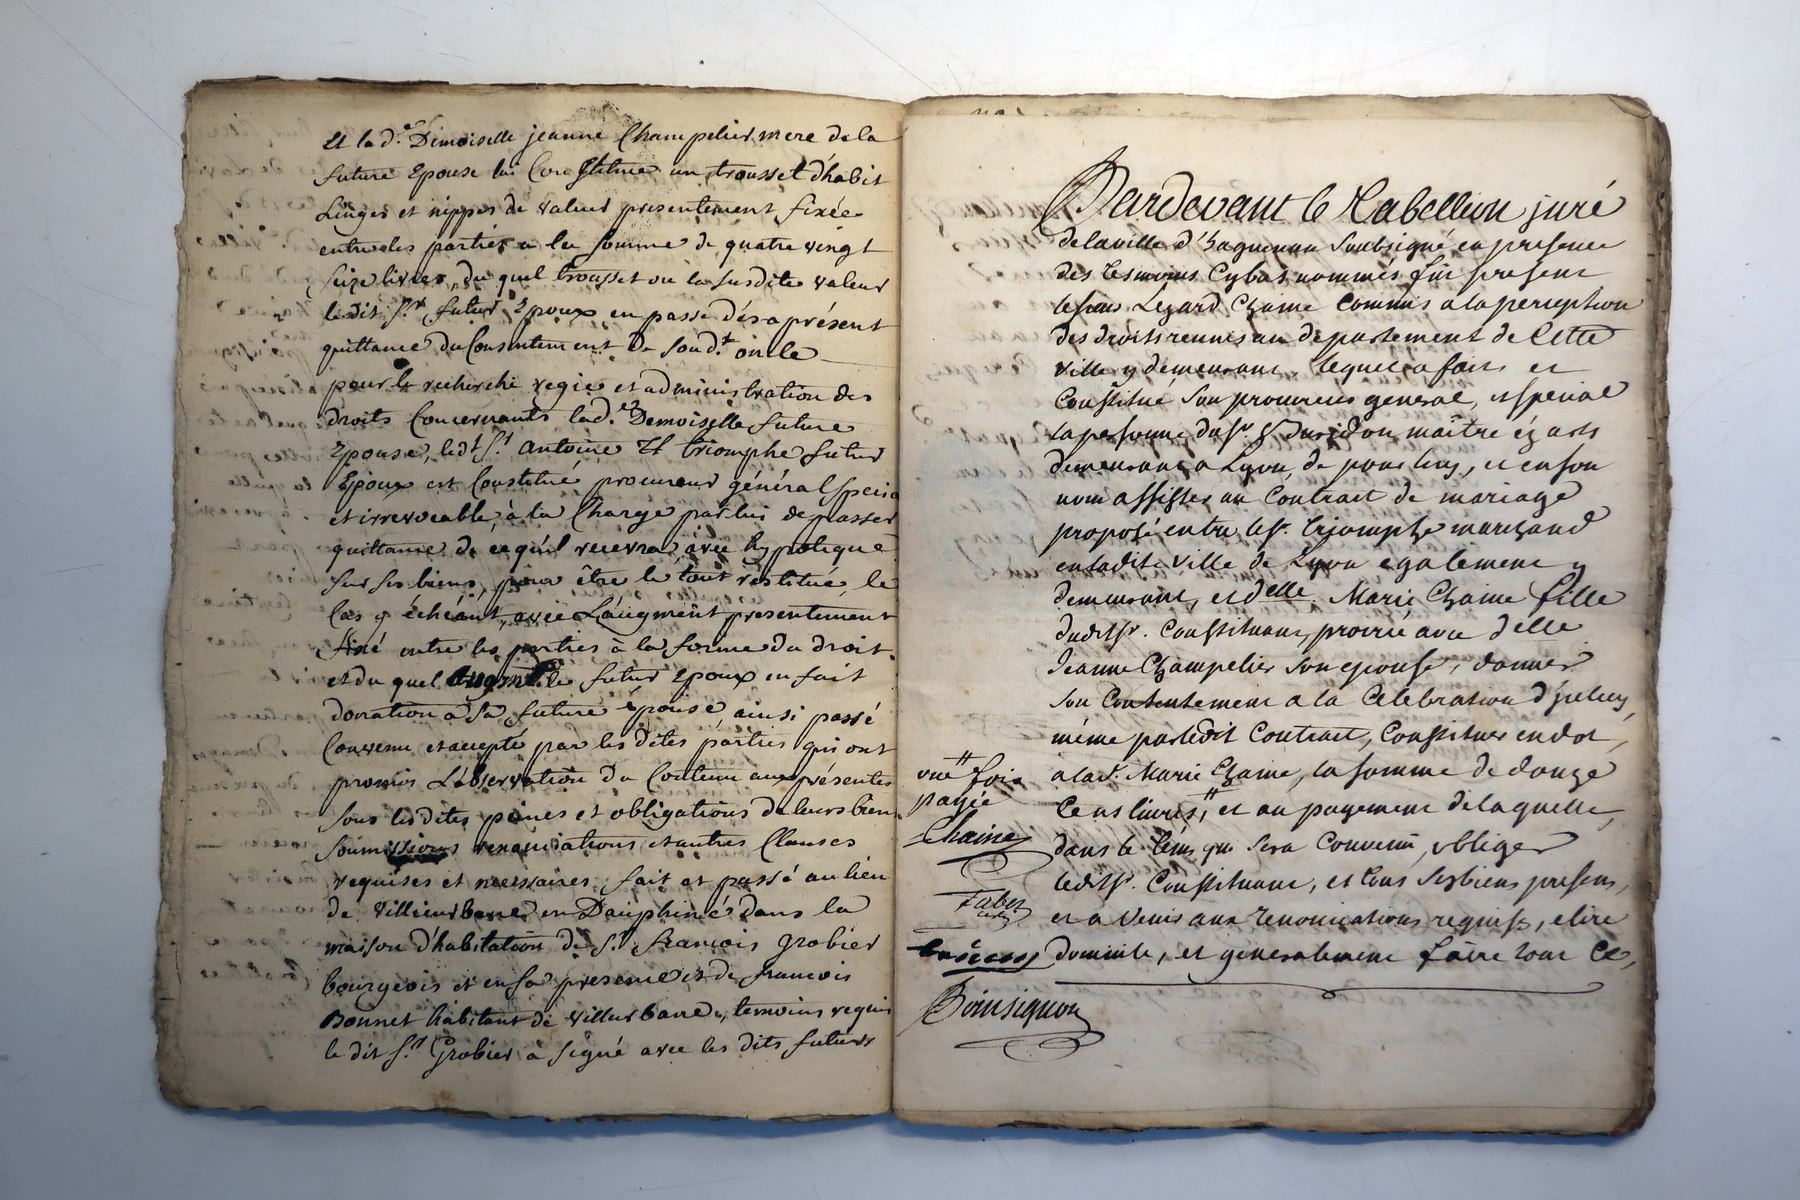 Et la d.e Demoiselle jeanne Champelier mere de la
future Epouse lui Constitue un trousset d'habit
Linges et nippes de valeur presentement fixée
entre les parties a la somme de quatre vingt
seize livres, du quel trousset ou la susdite valeur
le dit s.r futur Epoux en passe dés a présent
quittance du Consentement de son d.t oncle
pour la recherche regie et administration des
droits Concernants la d.e Demoiselle future
Epouse, led.t s.r Antoine triomphe futur
Epoux est Constitué procureur général spécia
et irrevocable, à la Charge par lui de passer
quittance de ce qu'il recevra avec hypoteque
sur ses biens, pour être le tout restitué, le
Cas y échéant, avec L'augment presentement
fixé entre les parties à la forme du droit.
et du quel augmt. le futur Epoux en fait
donation à sa future épouse ainsi passé
Convenu et accepté par les dites parties qui ont
promis L'observation du Contenu aux présentes
sous les dites peines et obligations de leurs biens
soumissions renonciations et autres Clauses
requises et necessaires, fait et passé au lieu
de Villieurbane en Dauphiné dans la
maison d'habitation de s.r françois Grobier
bourgeois et en sa presence et de francois
Bonnet habitant de villeurbanne, temoins requis
le dit s.r Grobier à signé avec les dits futurs
Pardevant le Tabellion juré
de la ville d'haguenau Soubsigné en presence
des tesmoins Cybas nommés fut present
le sieur Chaine Commis a la perception
des droits reunis au departement de Cette
Ville y demeurant, lequel a fait et
Constitué son procureur general, et special
la personne du Sr. maitre éz arts
demeurant a Lyon, de pour luy, et en son
nom assister au Contract de mariage
proposé entre le sr. triomphe marchand
en ladite ville de Lyon egalement y
demeurant, et delle. Marie Chaine fille
dudit sr. Constituant, procréé avec delle
Jeanne Champelier son epouse, donner
son Consentement a la Celebration d'yceluy,
méme par ledit Contract, Constituer en dot,
a la d. Marie Chaine, la somme de douze
Cens livres," et au payement de laquelle,
dans le tems qui sera Convenü, obliger
ledit sr. Constituant, et tous ses biens presens,
et a venir aux renonciations requises, elire
domicile, et generalement faire tout Ce,
une" fois
payée
Chaine
Faber
Boinsignon